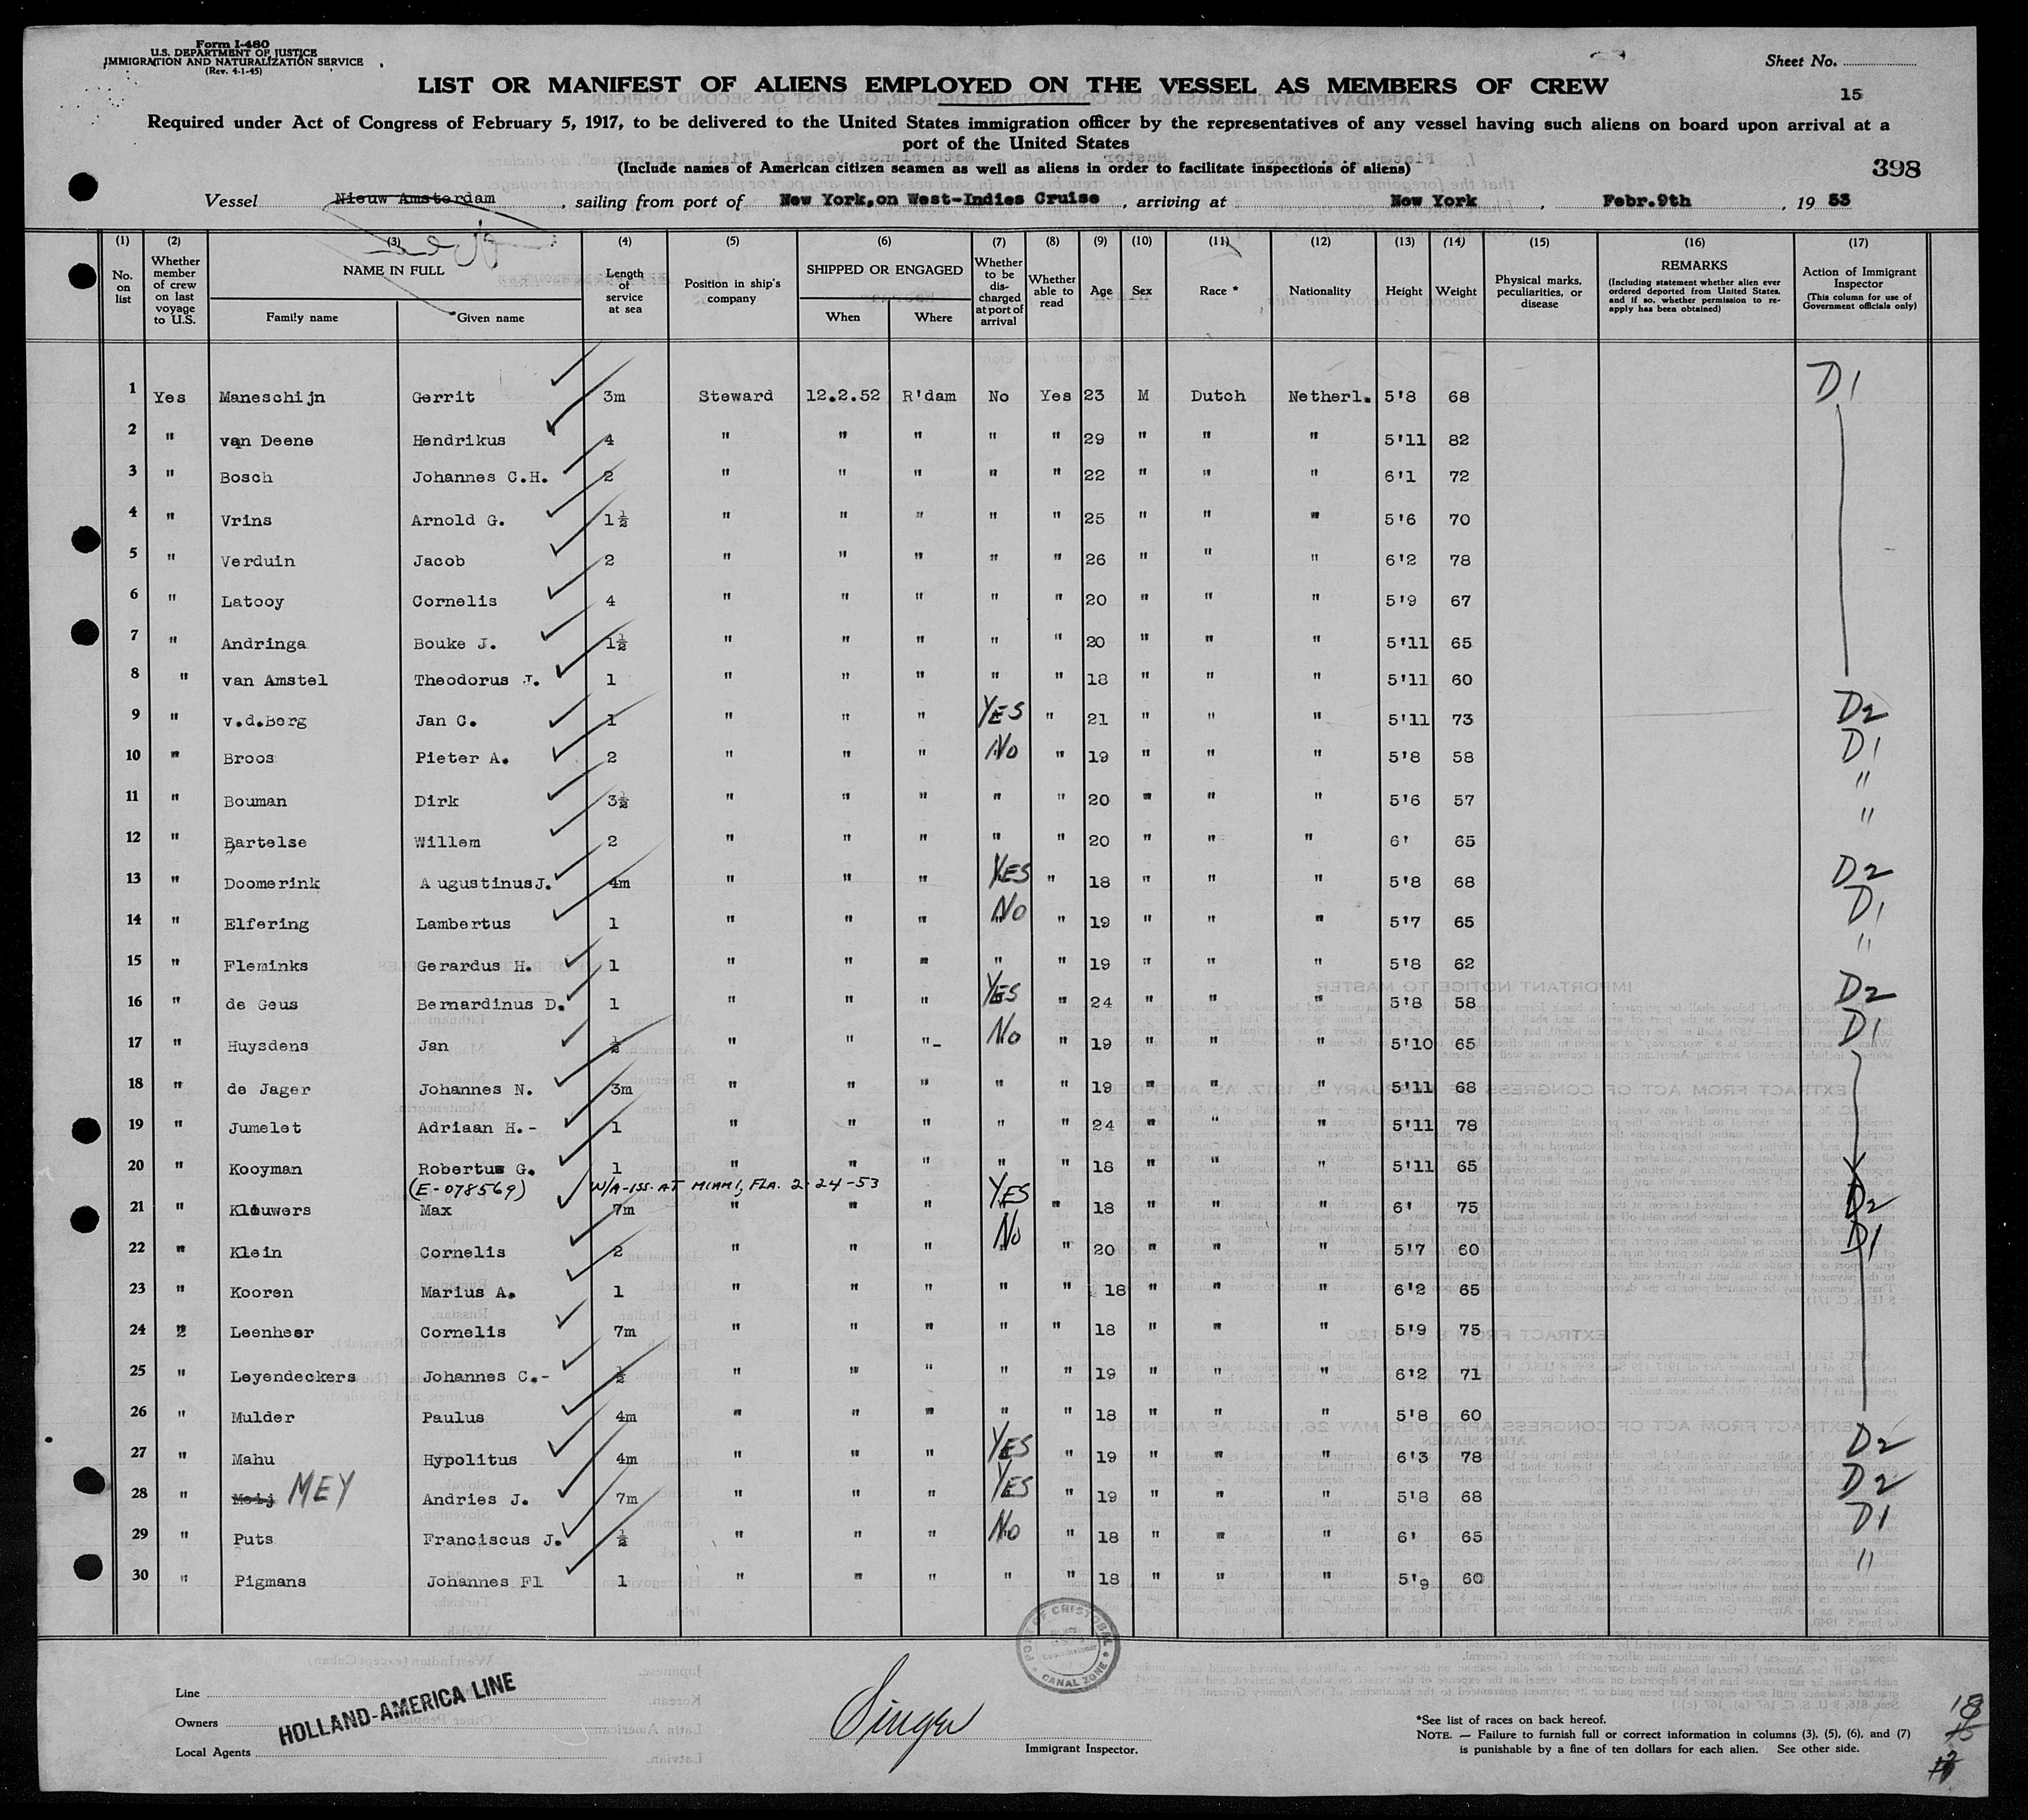 Form I-480
U.S. DEPARTMENT OF JUSTICE
IMMIGRATION AND NATURALIZATION SERVICE
(Rev. 4-1-45)
Sheet No.
15
LIST OR MANIFEST OF ALIENS EMPLOYED ON THE VESSEL AS MEMBERS OF CREW
Required under Act of Congress of February 5, 1917, to be delivered to the United States immigration officer by the representatives of any vessel having such aliens on board upon arrival at a
port of the United States
(Include names of American citizen seamen as well as aliens in order to facilitate inspections of aliens)
398
Vessel Nieuw Amsterdam, sailing from port of New York, on West-Indies Cruise, arriving at New York, Febr.9th, 19 53
(1) (2) (3) (4) (5) (6) (7) (8) (9) (10) (11) (12) (13) (14) (15) (16) (17)
No. on list
Whether member of crew on last voyage to U.S.
NAME IN FULL
Family name
Given name
Length of service at sea
Position in ship's company
SHIPPED OR ENGAGED
When
Where
Whether to be discharged at port of arrival
Whether able to read
Age
Sex
Race *
Nationality
Height
Weight
Physical marks, peculiarities, or disease
REMARKS
(Including statement whether alien ever ordered deported from United States, and if so, whether permission to re-apply has been obtained)
Action of Immigrant Inspector
(This column for use of Government officials only)
1 Yes Maneschijn Gerrit 3m Steward 12.2.52 R'dam No Yes 23 M Dutch Netherl. 5'8 68 D1
2 " van Deene Hendrikus 4 " " " " " 29 " " " 5'11 82
3 " Bosch Johannes C.H. 2 " " " " " 22 " " " 6'1 72
4 " Vrins Arnold G. 1½ " " " " " 25 " " " 5'6 70
5 " Verduin Jacob 2 " " " " " 26 " " " 6'2 78
6 " Latooy Cornelis 4 " " " " " 20 " " " 5'9 67
7 " Andringa Bouke J. 1½ " " " " " 20 " " " 5'11 65
8 " van Amstel Theodorus J. 1 " " " " " 18 " " " 5'11 60
9 " v.d.Berg Jan C. 1 " " " YES " 21 " " " 5'11 73 D2
10 " Broos Pieter A. 2 " " " No " 19 " " " 5'8 58 D1
11 " Bouman Dirk 3½ " " " " " 20 " " " 5'6 57 "
12 " Bartelse Willem 2 " " " " " 20 " " " 6' 65 "
13 " Doomerink AugustinusJ. 4m " " " YES " 18 " " " 5'8 68 D2
14 " Elfering Lambertus 1 " " " No " 19 " " " 5'7 65 D1
15 " Fleminks Gerardus H. 1 " " " " " 19 " " " 5'8 62 "
16 " de Geus Bernardinus D. 1 " " " YES " 24 " " " 5'8 58 D2
17 " Huysdens Jan ½ " " "- No " 19 " " " 5'10 65 D1
18 " de Jager Johannes N. 3m " " " " " 19 " " " 5'11 68
19 " Jumelet Adriaan H.- 1 " " " " " 24 " " " 5'11 78
20 " Kooyman Robertus G. 1 " " " " " 18 " " " 5'11 65
(E-078569) W/A-ISS. AT MIAMI, FLA. 2-24-53
21 " Klouwers Max 7m " " " YES " 18 " " " 6' 75 D2
22 " Klein Cornelis 2 " " " No " 20 " " " 5'7 60 D1
23 " Kooren Marius A. 1 " " " " " 18 " " " 6'2 65
24 " Leenheer Cornelis 7m " " " " " 18 " " " 5'9 75
25 " Leyendeckers Johannes C.- ½ " " " " " 19 " " " 6'2 71
26 " Mulder Paulus 4m " " " " " 18 " " " 5'8 60
27 " Mahu Hypolitus 4m " " " YES " 19 " " " 6'3 78 D2
28 " Meij MEY Andries J. 7m " " " YES " 19 " " " 5'8 68 D2
29 " Puts Franciscus J. ½ " " " No " 18 " " " 6' 65 D1
30 " Pigmans Johannes Fl 1 " " " " " 18 " " " 5'9 60 "
PORT OF CRISTOBAL
CANAL ZONE
Line
Owners
Local Agents
HOLLAND-AMERICA LINE
Singer
Immigrant Inspector.
*See list of races on back hereof.
NOTE. — Failure to furnish full or correct information in columns (3), (5), (6), and (7)
is punishable by a fine of ten dollars for each alien. See other side.